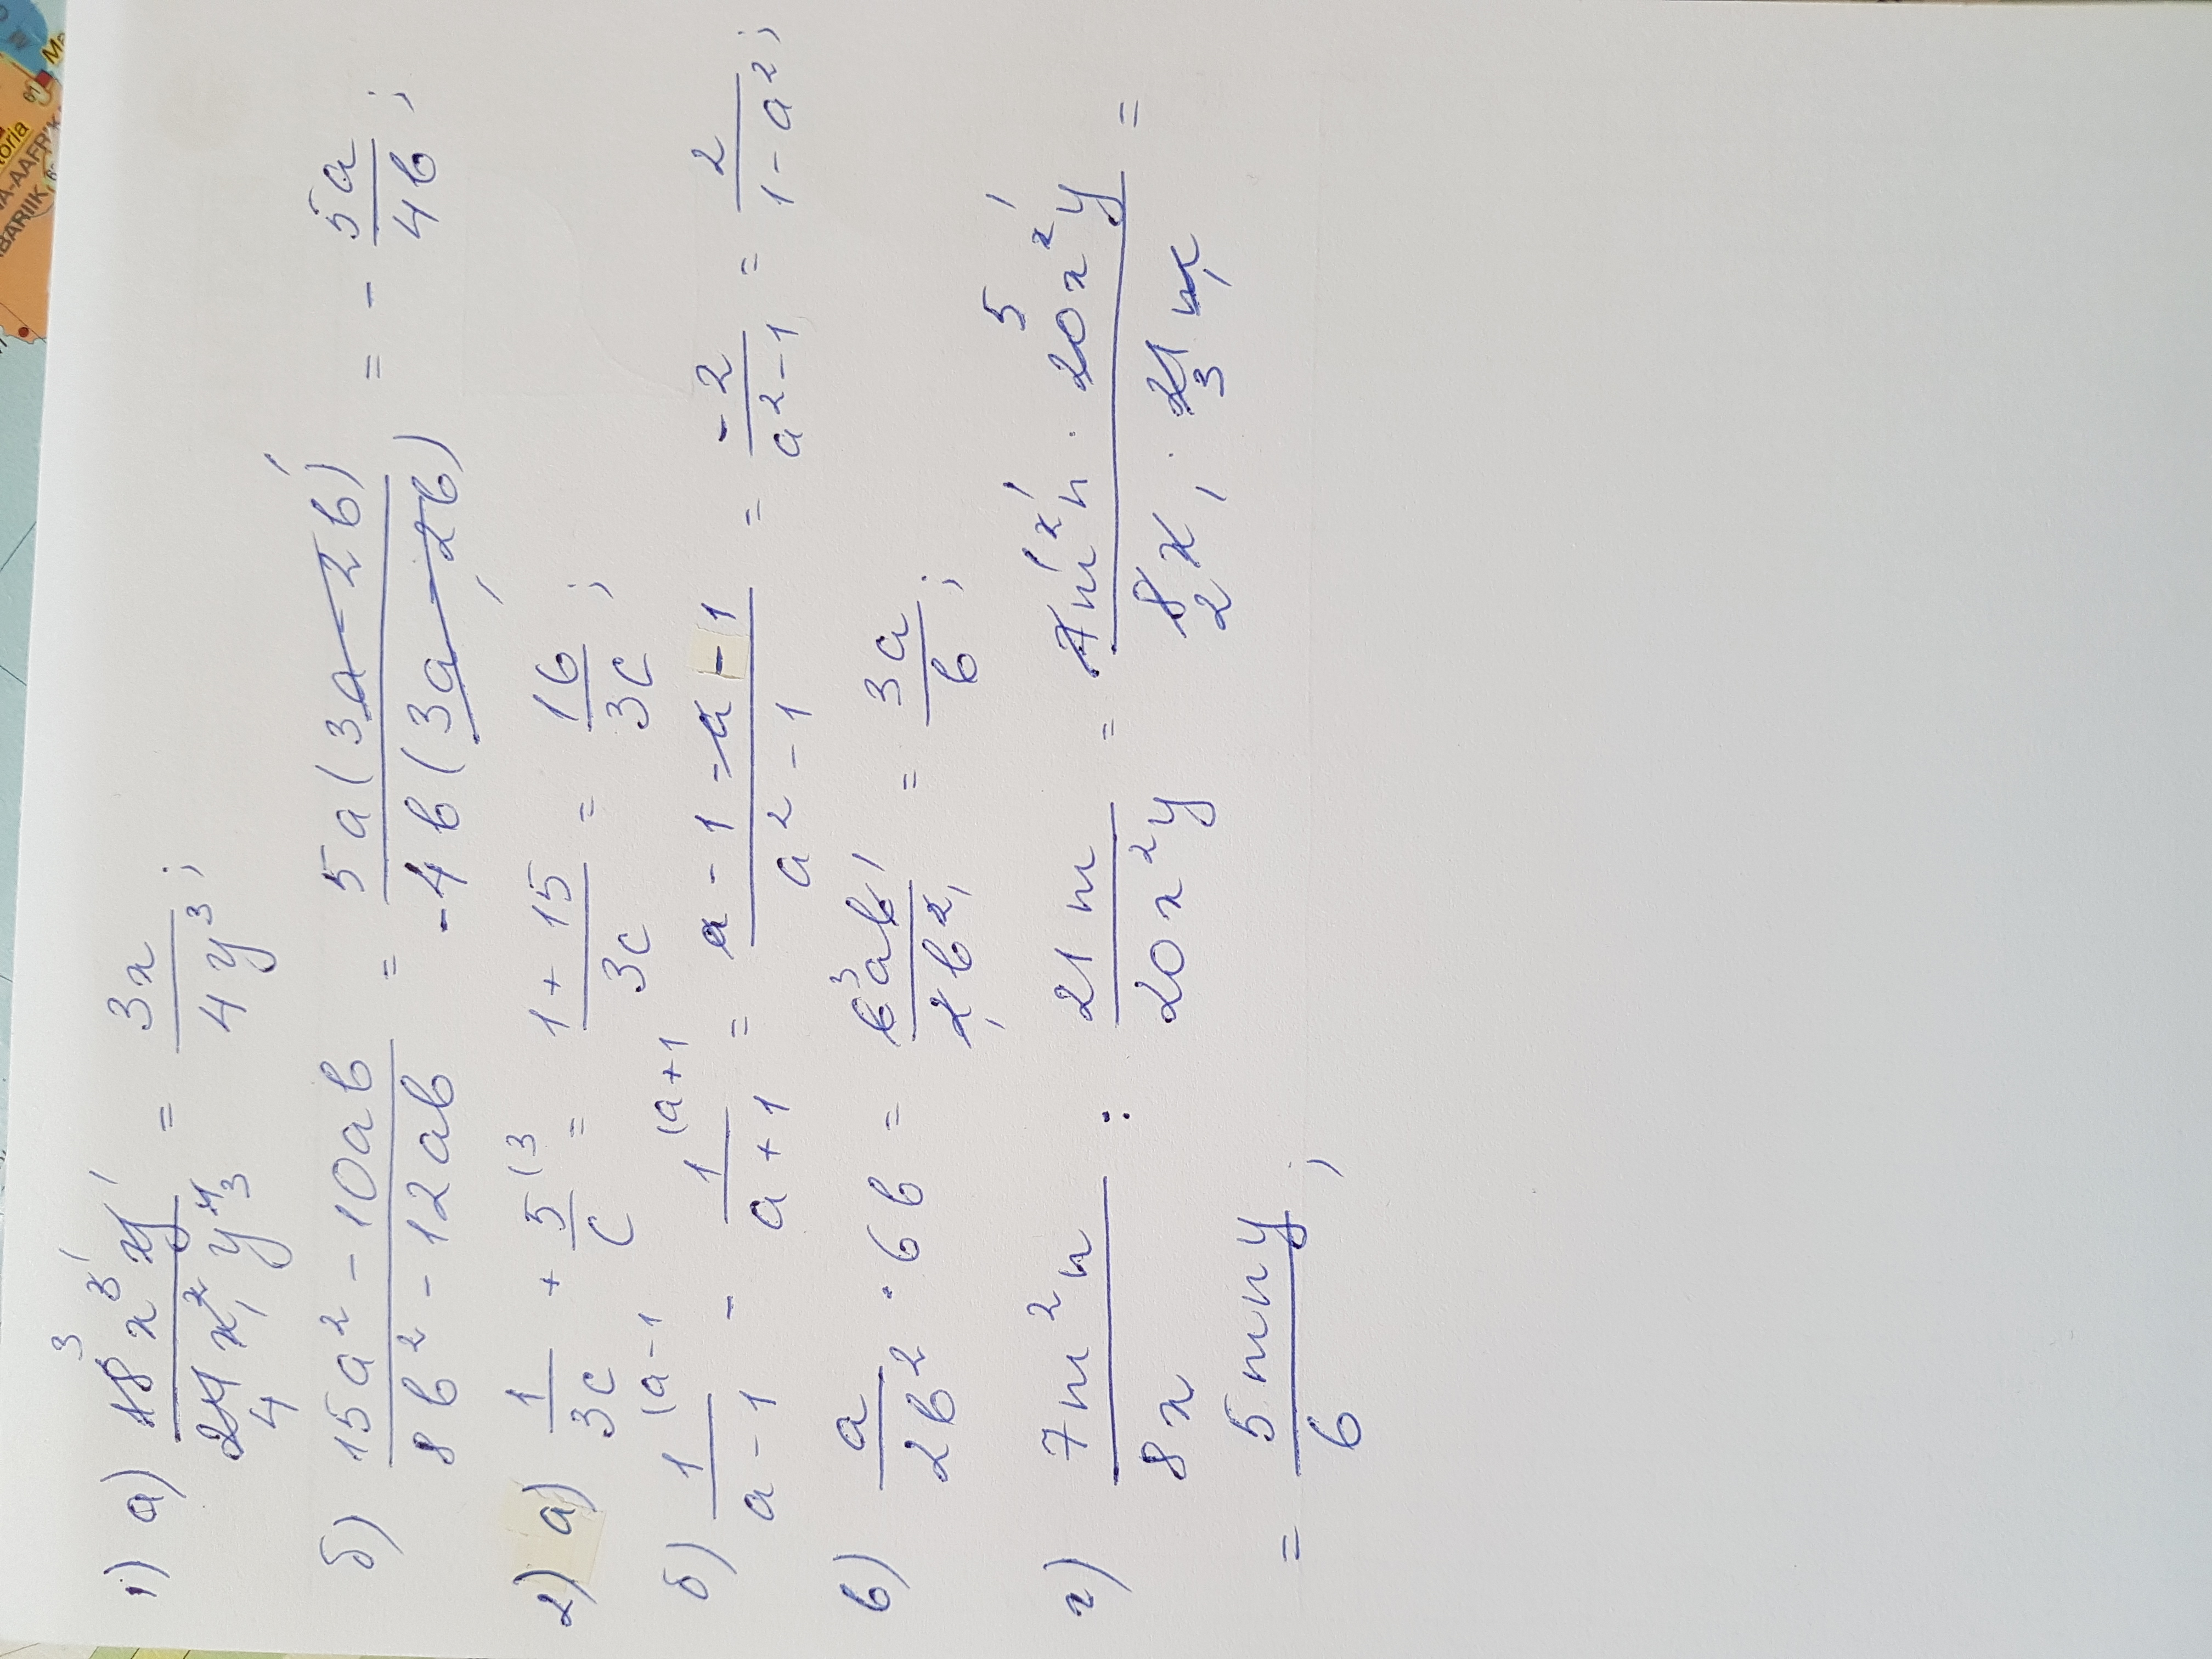 1) а) 18x³y / 24x²y⁴ = 3x / 4y³;
б) 15a² - 10ab / 8b² - 12ab = 5a(3a - 2b) / -4b(3a - 2b) = - 5a / 4b;
2) а) 1 / 3c + 5 / c (3 = 1 + 15 / 3c = 16 / 3c;
б) 1 / a - 1 (a - 1 - 1 / a + 1 (a + 1 = a - 1 - a - 1 / a² - 1 = -2 / a² - 1 = 2 / 1 - a²;
в) a / 2b² · 6b = 6ab / 2b² = 3a / b;
г) 7m²n / 8x : 21m / 20x²y = 7m²n · 20x²y / 8x · 21m =
= 5mny / 6;